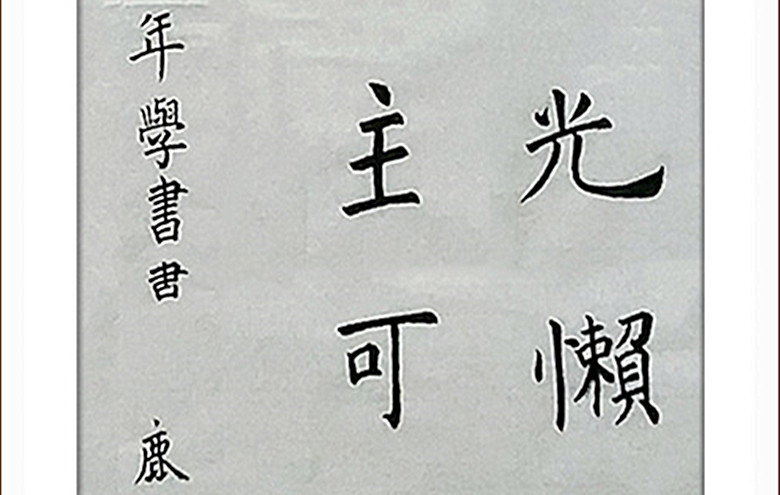 光懶
主可
年學書書
鹿